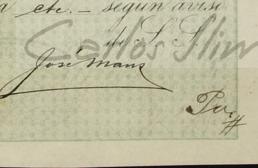 etc. — según aviso
de S. S.
Carlos Slim
José Maus